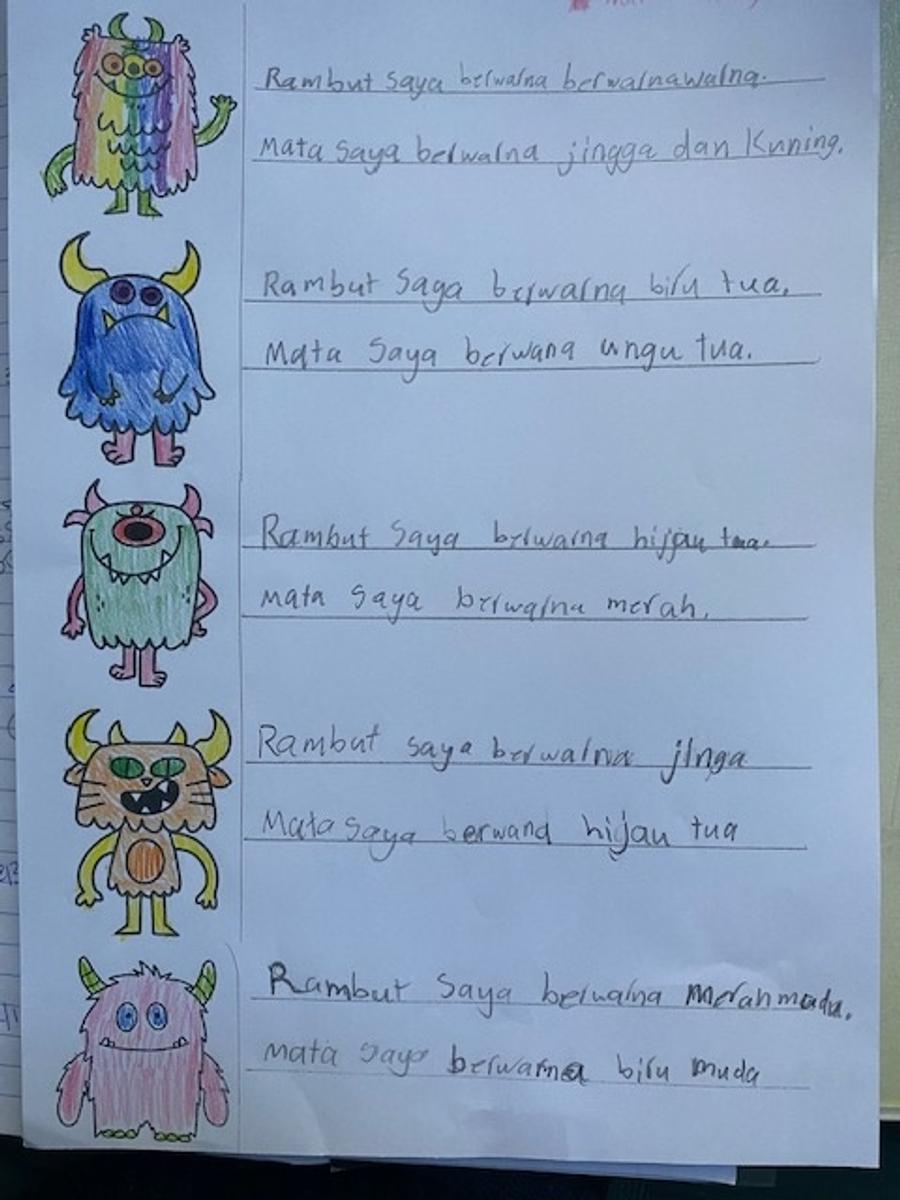 Rambut saya berwarna berwarnawarna.
Mata saya berwarna jingga dan Kuning.
Rambut Saya berwarna biru tua.
Mata Saya berwana ungu tua.
Rambut Saya berwarna hijjau tua.
Mata Saya berwarna merah.
Rambut saya berwarna jinga
Mata saya berwana hijau tua
Rambut Saya berwarna Merah muda.
Mata saya berwarna biru muda